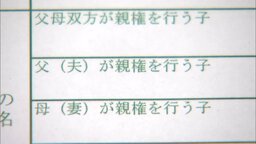 父母双方が親権を行う子
父（夫）が親権を行う子
母（妻）が親権を行う子
の
名